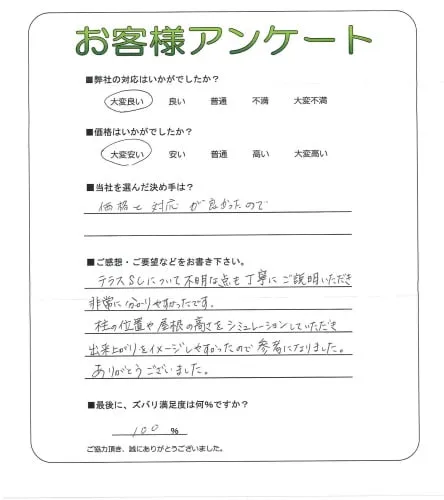 お客様アンケート
■弊社の対応はいかがでしたか？
大変良い 良い 普通 不満 大変不満
■価格はいかがでしたか？
大変安い 安い 普通 高い 大変高い
■当社を選んだ決め手は？
価格と対応が良かったので
■ご感想・ご要望などをお書き下さい。
テラスSCについて不明な点も丁寧にご説明いただき
非常に分かりやすかったです。
柱の位置や屋根の高さをシミュレーションしていただき
出来上がりをイメージしやすかったので参考になりました。
ありがとうございました。
■最後に、ズバリ満足度は何%ですか？
100 %
ご協力頂き、誠にありがとうございました。